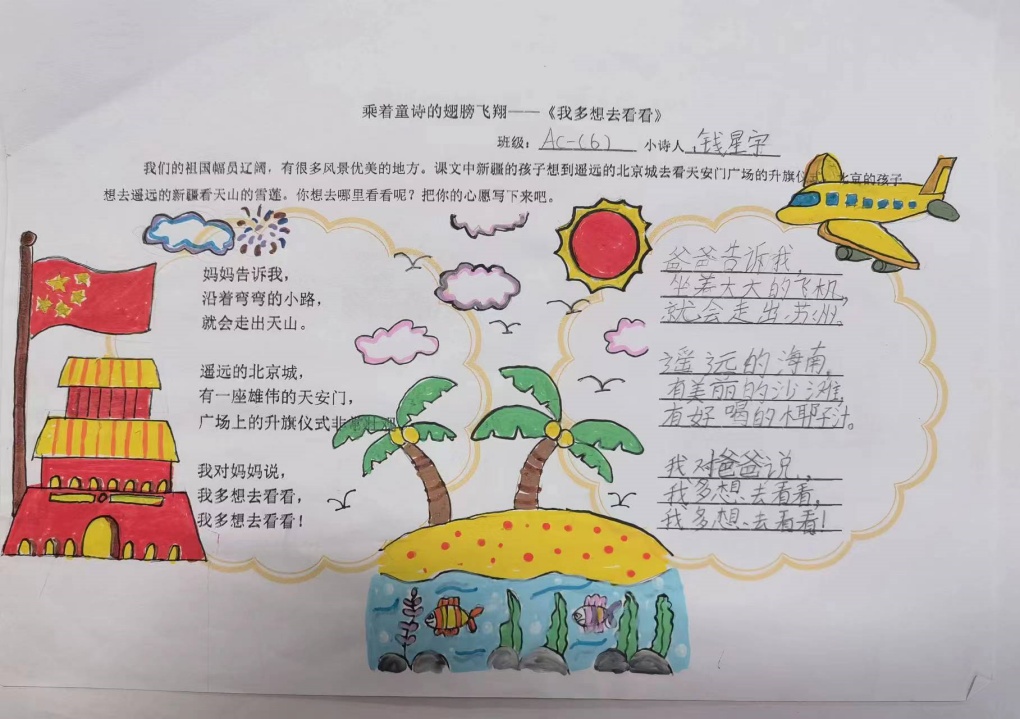 乘着童诗的翅膀飞翔——《我多想去看看》
班级：AC-(6) 小诗人 钱星宇
我们的祖国幅员辽阔，有很多风景优美的地方。课文中新疆的孩子想到遥远的北京城去看天安门广场的升旗仪 北京的孩子
想去遥远的新疆看天山的雪莲。你想去哪里看看呢？把你的心愿写下来吧。
妈妈告诉我，
沿着弯弯的小路，
就会走出天山。
遥远的北京城，
有一座雄伟的天安门，
广场上的升旗仪式非常壮观
我对妈妈说，
我多想去看看，
我多想去看看！
爸爸告诉我，
坐着大大的飞机，
就会走出苏州。
遥远的海南，
有美丽的沙滩，
有好喝的椰子汁。
我对爸爸说，
我多想去看看，
我多想去看看！